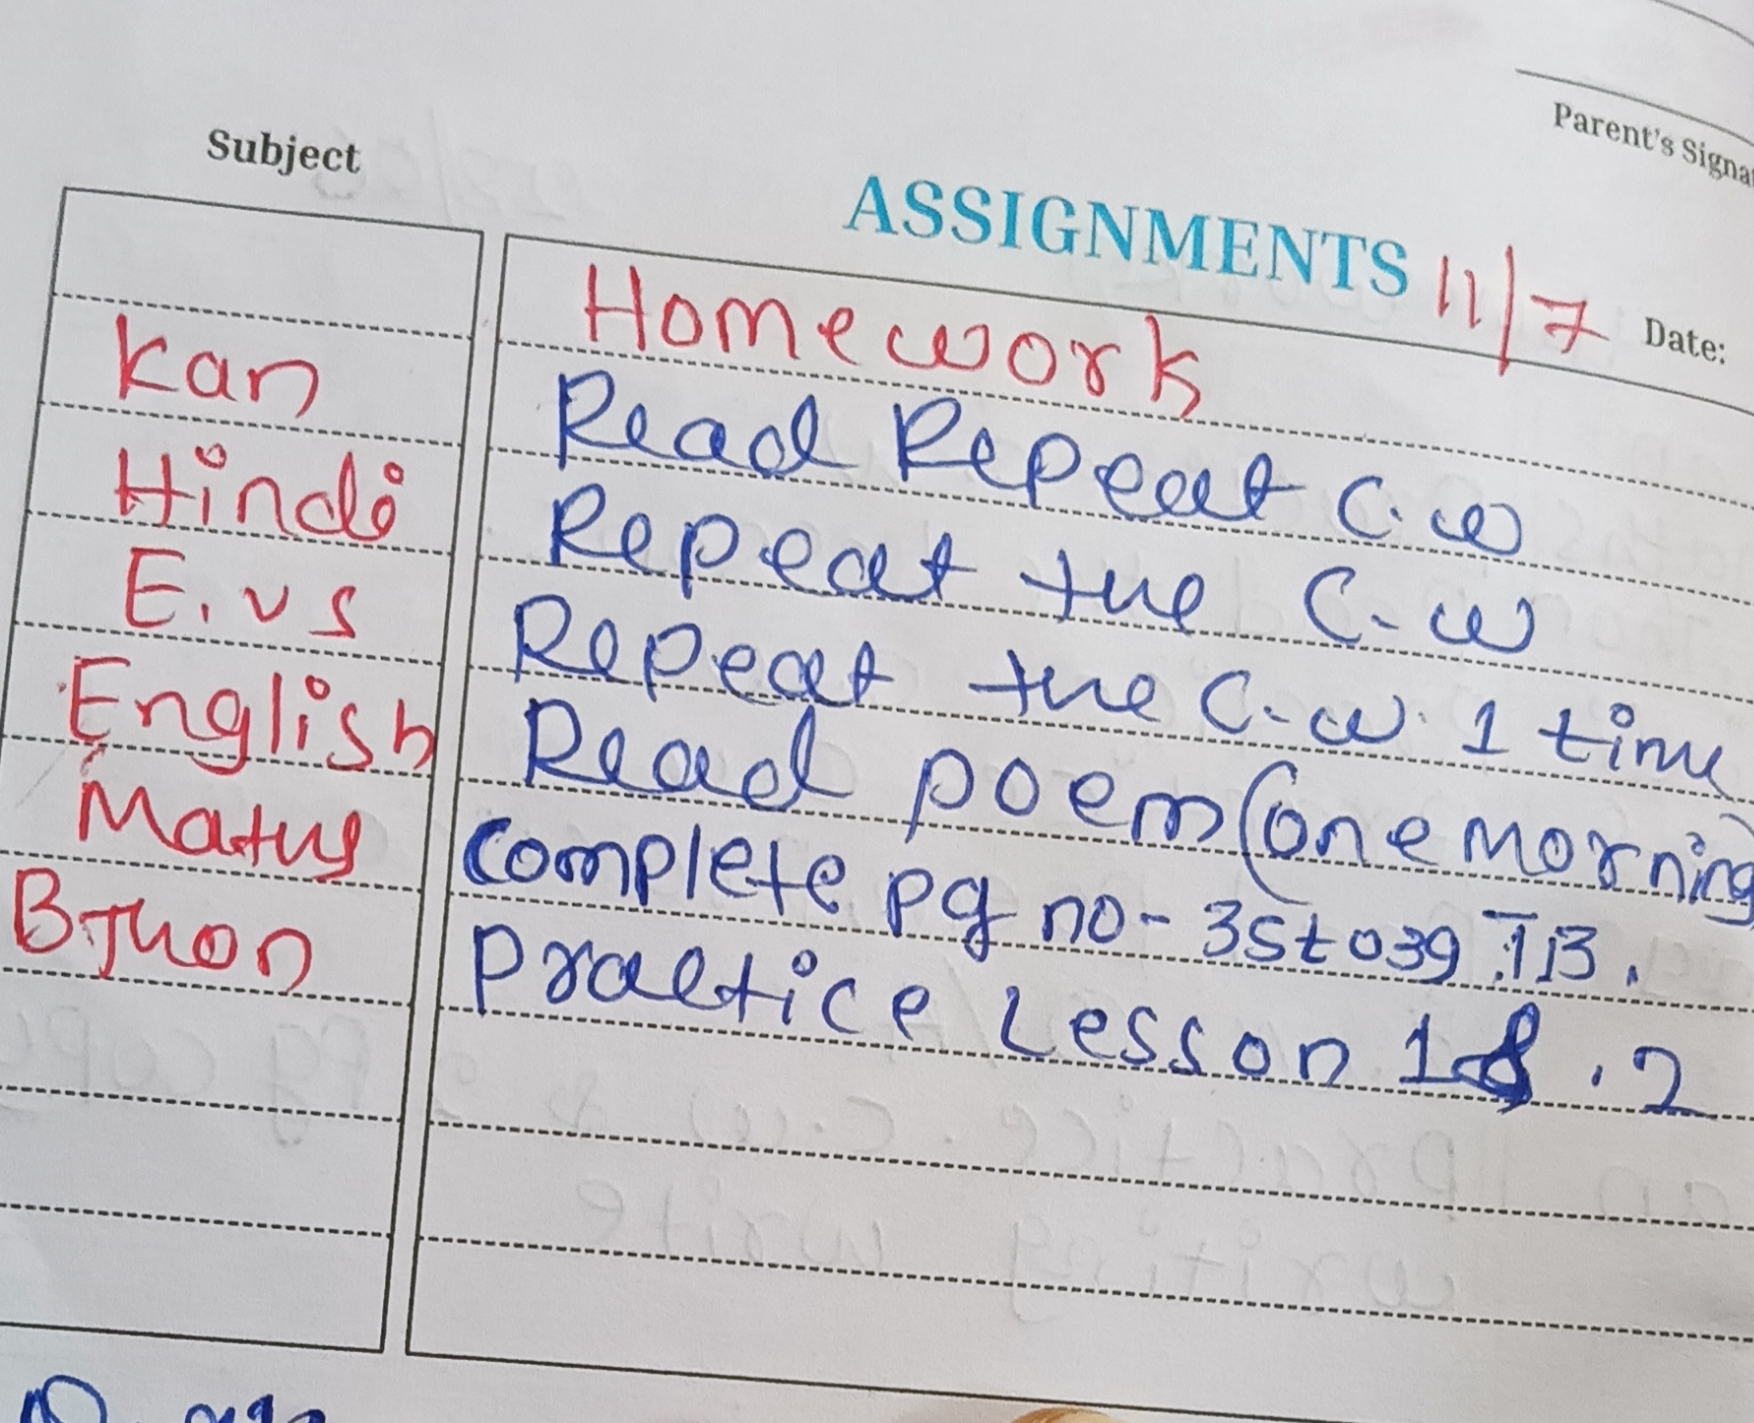 Parent's Signa
Subject
ASSIGNMENTS 11/7 Date:
Homework
Kan Read Repeat C.W
Hindi Repeat the C.W
E.VS Repeat the C.W. 1 time
English Read poem (one morning)
Maths Complete pg no-35to39 T.B.
Practice Lesson 1 . 2